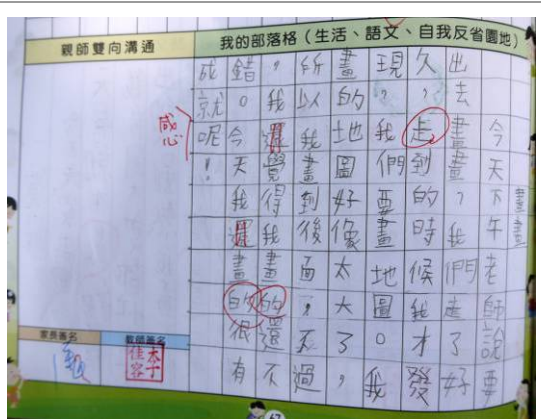 親師雙向溝通
我的部落格（生活、語文、自我反省園地）
畫畫
今天下午老師說要
出去畫畫，我們走了好
久，走到的時候我才發
現，我們要畫地圖。我
畫的地圖好像太大了，
所以我畫到後面，不過
，我還覺得我畫的還不
錯。今天我還畫的很有
成就呢！
家長簽名
教師簽名